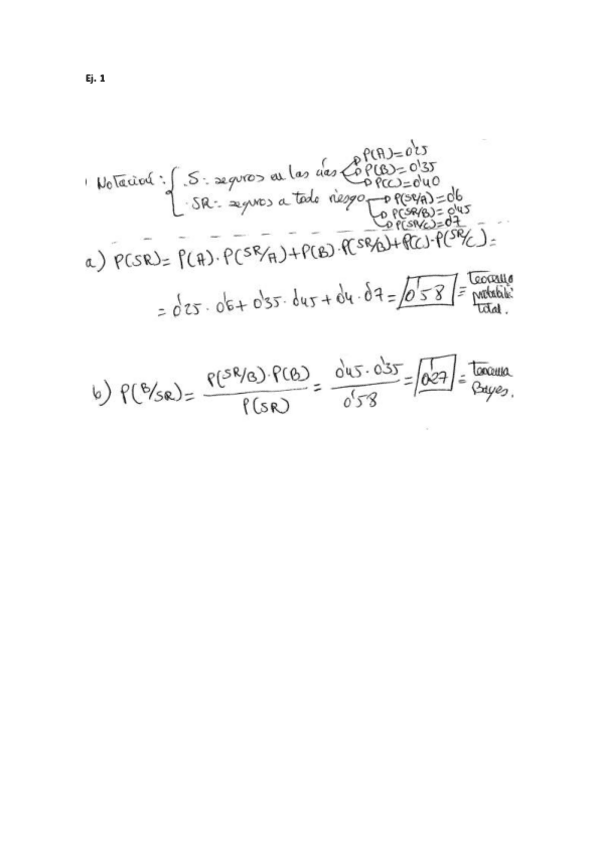 Ej. 1
Notación: { . S: seguros en las cías → P(A)=0'25
→ P(B)=0'35
→ P(C)=0'40
. SR: seguros a todo riesgo → P(SR/A)=0'6
→ P(SR/B)=0'45
→ P(SR/C)=0'7
a) P(SR)= P(A)·P(SR/A)+P(B)·P(SR/B)+P(C)·P(SR/C)=
= 0'25·0'6+0'35·0'45+0'4·0'7= 0'58 ≡ Teorema probabili total.
b) P(B/SR)= P(SR/B)·P(B) / P(SR) = 0'45·0'35 / 0'58 = 0'27 ≡ Teorema Bayes.